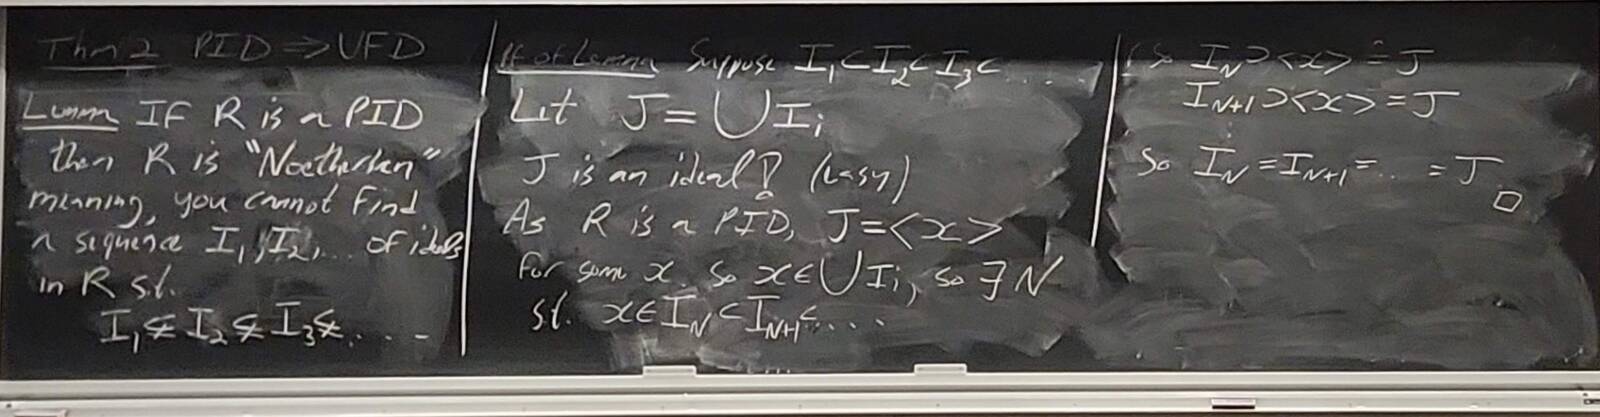 Thm 2 PID ⇒ UFD
Lemma IF R is a PID
then R is "Noetherian"
meaning, you cannot find
a sequence I₁, I₂, ... of ideals
in R s.t.
I₁ ⊊ I₂ ⊊ I₃ ⊊ ...
Pf of Lemma Suppose I₁ ⊂ I₂ ⊂ I₃ ⊂ ...
Let J = ⋃ Iᵢ
J is an ideal! (easy)
As R is a PID, J = <x>
for some x. So x ∈ ⋃ Iᵢ, so ∃ N
s.t. x ∈ I_N ⊂ I_{N+1} ⊂ ...
so I_N ⊃ <x> = J
I_{N+1} ⊃ <x> = J
⋮
So I_N = I_{N+1} = ... = J
□